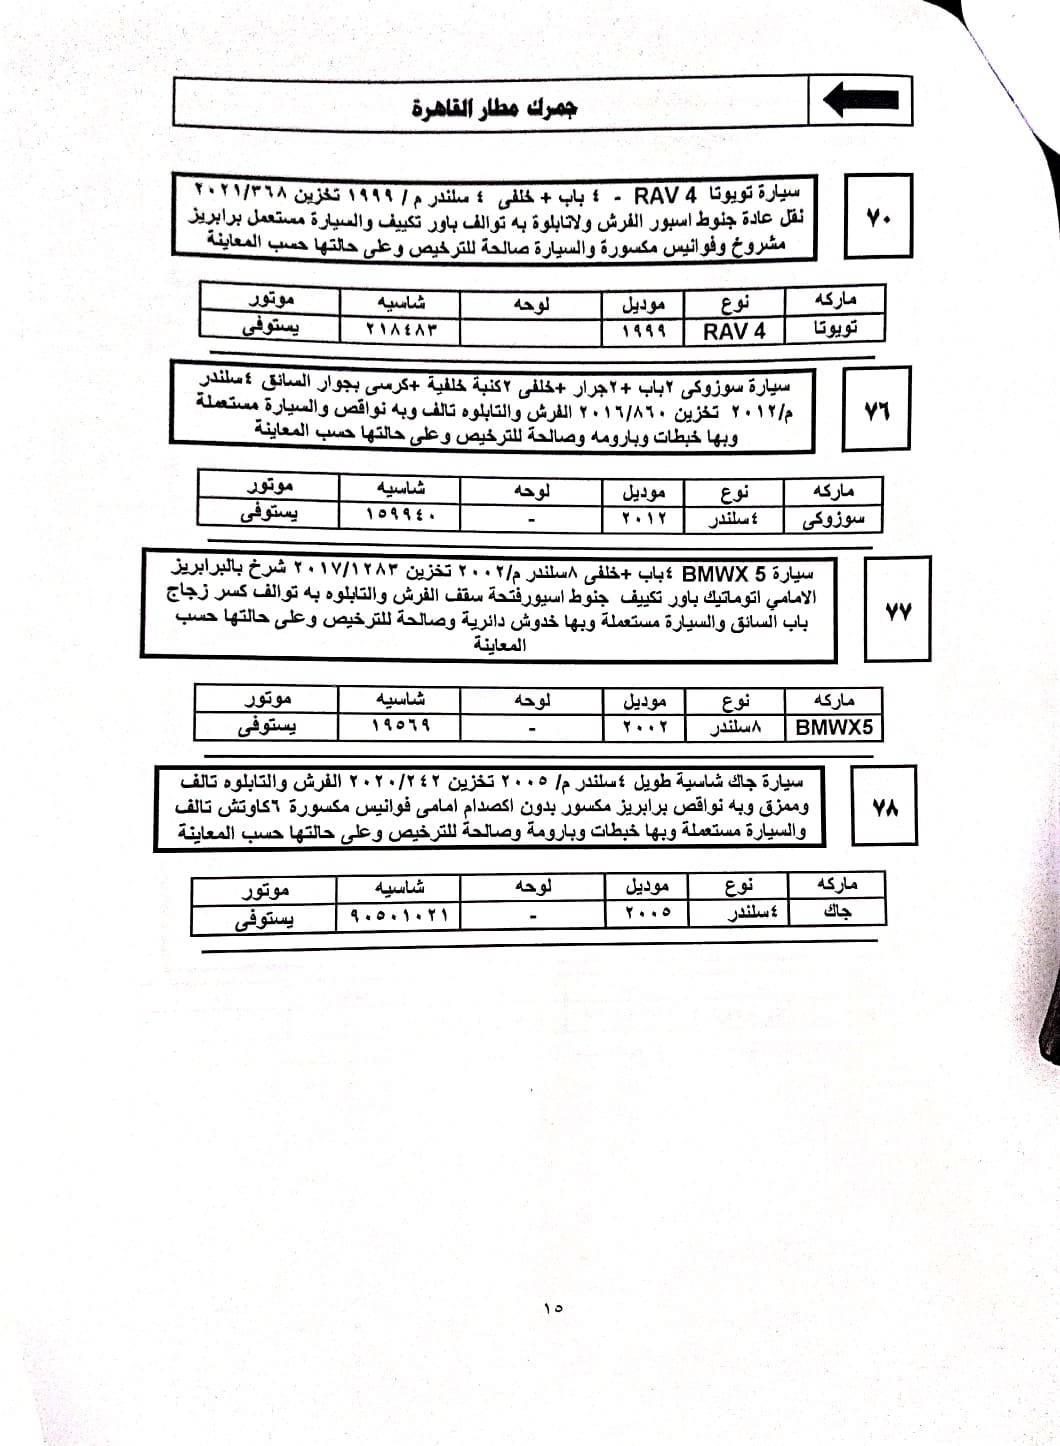 جمرك مطار القاهرة
٧٠
سيارة تويوتا RAV 4 - ٤ باب + خلفى ٤ سلندر م / ١٩٩٩ تخزين ٢٠٢١/٣٦٨
نقل عادة جنوط اسبور الفرش ولاتابلوة به توالف باور تكييف والسيارة مستعمل برابريز
مشروخ وفوانيس مكسورة والسيارة صالحة للترخيص وعلى حالتها حسب المعاينة
ماركه نوع موديل لوحه شاسيه موتور
تويوتا RAV 4 ١٩٩٩ ٢١٨٤٨٣ يستوفى
٧٦
سيارة سوزوكى ٢باب +٢جرار +خلفى ٢كنبة خلفية +كرسى بجوار السائق ٤سلندر
م/٢٠١٢ تخزين ٢٠١٦/٨٦٠ الفرش والتابلوه تالف وبه نواقص والسيارة مستعملة
وبها خبطات وبارومه وصالحة للترخيص وعلى حالتها حسب المعاينة
ماركه نوع موديل لوحه شاسيه موتور
سوزوكى ٤سلندر ٢٠١٢ - ١٥٩٩٤٠ يستوفى
٧٧
سيارة BMWX 5 ٤باب +خلفى ٨سلندر م/٢٠٠٢ تخزين ٢٠١٧/١٢٨٣ شرخ بالبرابريز
الامامي اتوماتيك باور تكييف جنوط اسبورفتحة سقف الفرش والتابلوه به توالف كسر زجاج
باب السائق والسيارة مستعملة وبها خدوش دائرية وصالحة للترخيص وعلى حالتها حسب
المعاينة
ماركه نوع موديل لوحه شاسيه موتور
BMWX5 ٨سلندر ٢٠٠٢ - ١٩٥٦٩ يستوفى
٧٨
سيارة جاك شاسية طويل ٤سلندر م/ ٢٠٠٥ تخزين ٢٠٢٠/٢٤٢ الفرش والتابلوه تالف
وممزق وبه نواقص برابريز مكسور بدون اكصدام امامى فوانيس مكسورة ٦كاوتش تالف
والسيارة مستعملة وبها خبطات وبارومة وصالحة للترخيص وعلى حالتها حسب المعاينة
ماركه نوع موديل لوحه شاسيه موتور
جاك ٤سلندر ٢٠٠٥ - ٩٠٥٠١٠٢١ يستوفى
١٥